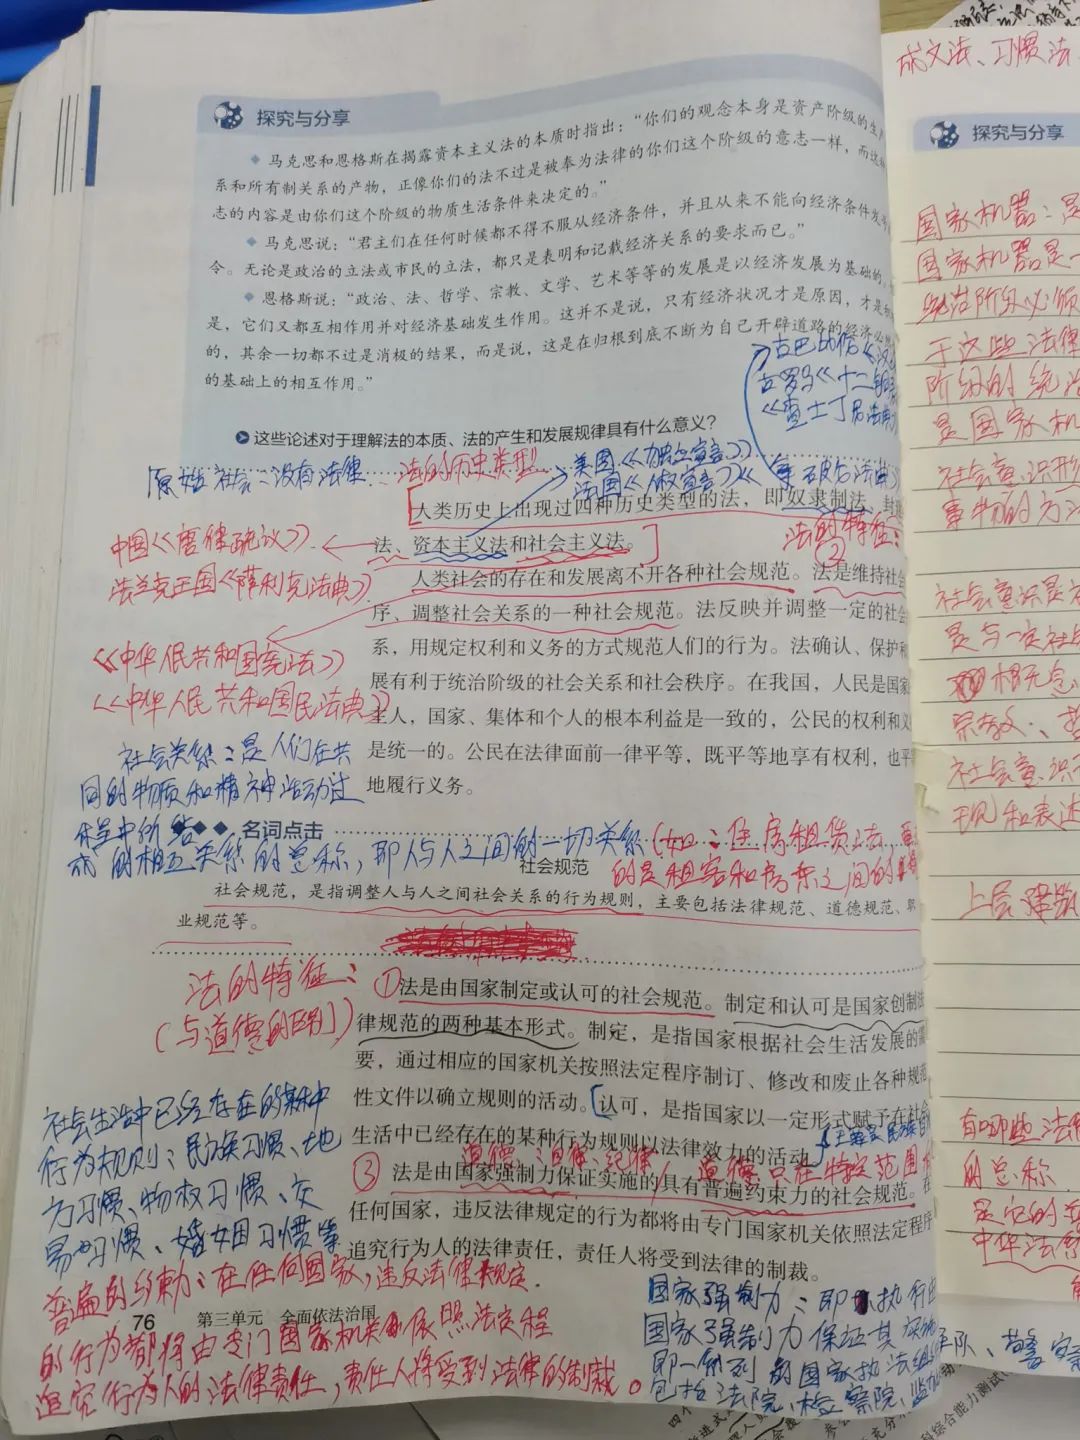 探究与分享
马克思和恩格斯在揭露资本主义法的本质时指出：“你们的观念本身是资产阶级的生
系和所有制关系的产物，正像你们的法不过是被奉为法律的你们这个阶级的意志一样，而这
志的内容是由你们这个阶级的物质生活条件来决定的。”
马克思说：“君主们在任何时候都不得不服从经济条件，并且从来不能向经济条件发
令。无论是政治的立法或市民的立法，都只是表明和记载经济关系的要求而已。”
恩格斯说：“政治、法、哲学、宗教、文学、艺术等等的发展是以经济发展为基础的。
是，它们又都互相作用并对经济基础发生作用。这并不是说，只有经济状况才是原因，才是
的，其余一切都不过是消极的结果，而是说，这是在归根到底不断为自己开辟道路的经济必
的基础上的相互作用。”
古巴比伦《汉
古罗马《十二铜表
《查士丁尼法典》
这些论述对于理解法的本质、法的产生和发展规律具有什么意义？
原始社会：没有法律
法的历史类型
美国《独立宣言》
法国《人权宣言》《拿破仑法典》
人类历史上出现过四种历史类型的法，即奴隶制法、封
法、资本主义法和社会主义法。
法的特征：
②
中国《唐律疏议》
法兰克王国《萨利克法典》
人类社会的存在和发展离不开各种社会规范。法是维持社会
序、调整社会关系的一种社会规范。法反映并调整一定的社会
系，用规定权利和义务的方式规范人们的行为。法确认、保护和
展有利于统治阶级的社会关系和社会秩序。在我国，人民是国家
主人，国家、集体和个人的根本利益是一致的，公民的权利和义
是统一的。公民在法律面前一律平等，既平等地享有权利，也平
地履行义务。
《中华人民共和国宪法》
《中华人民共和国民法典》
社会关系：是人们在共
同的物质和精神活动过
程中所结
成的相互关系的总称，即人与人之间的一切关系
（如：住房租赁法
的是租客和房东之间的
名词点击
社会规范
社会规范，是指调整人与人之间社会关系的行为规则，主要包括法律规范、道德规范、职
业规范等。
法的特征：
（与道德的区别）
①法是由国家制定或认可的社会规范。制定和认可是国家创制法
律规范的两种基本形式。制定，是指国家根据社会生活发展的需
要，通过相应的国家机关按照法定程序制订、修改和废止各种规范
性文件以确立规则的活动。认可，是指国家以一定形式赋予在社会
生活中已经存在的某种行为规则以法律效力的活动。
道德：自律、纪律
道德只在特定范围
③法是由国家强制力保证实施的具有普遍约束力的社会规范。在
任何国家，违反法律规定的行为都将由专门国家机关依照法定程序
追究行为人的法律责任，责任人将受到法律的制裁。
社会生活中已经存在的某种
行为规则：民族习惯、地
方习惯、物权习惯、交
易习惯、婚姻习惯等
普遍的约勒：在任何国家，违反法律规定
的行为都将由专门国家机关依照法定程
追究行为人的法律责任，责任人将受到法律的制裁。
76 第三单元 全面依法治国
国家强制力：即执行由
国家强制力保证其实施
即一系列的国家执法组织军队、警察
包括法院、检察院、监狱
成文法、习惯法
探究与分享
国家机器：是
国家机器是一
统治阶级必须
于这些法律
阶级的统治
是国家机
社会意识形
事物的方法
社会意识是社
是与一定社会
相无意
宗教、哲
社会意识
现和表达
上层建筑
有哪些法律
的总称
是它的
中华法系
科综合能力测试